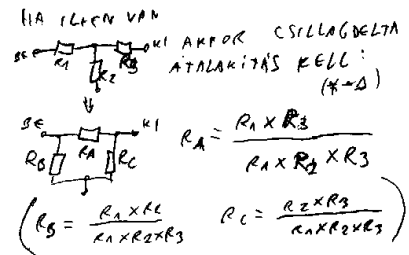 HA ILYEN VAN
BE R1 R2 R3 KI
AKKOR CSILLAGDELTA
ÁTALAKÍTÁS KELL:
(*→Δ)
BE RA KI
RB RC
RA = R1 X R3 / R1 X R2 X R3
(RB = R1 X RC / R1 X R2 X R3 RC = R2 X R3 / R1 X R2 X R3)